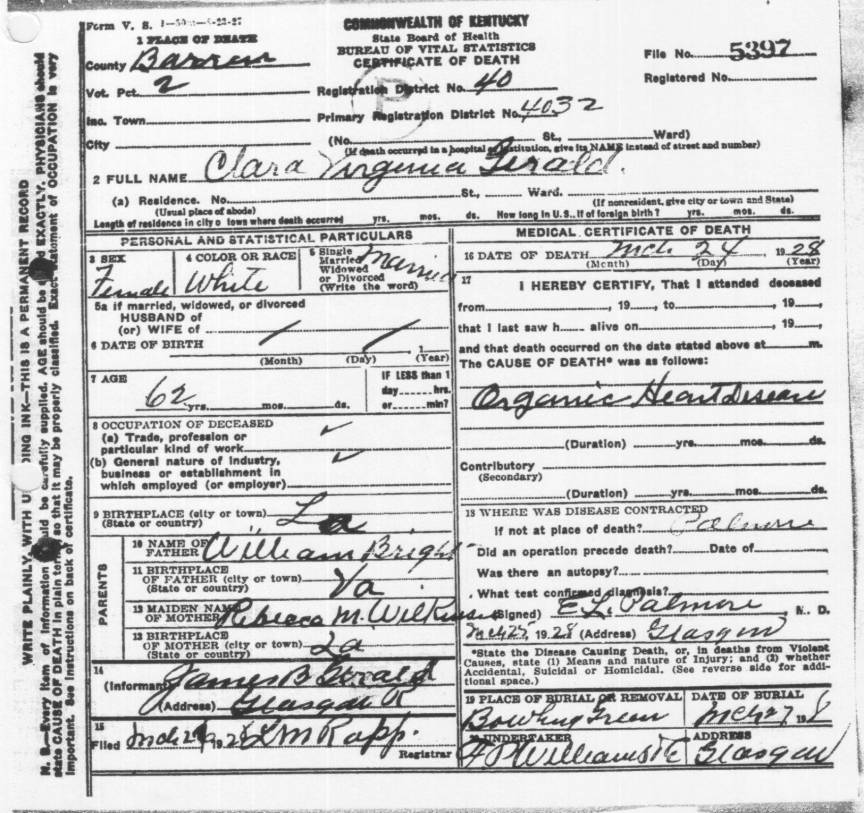 Form V. S. 1—50m—6-23-27
COMMONWEALTH OF KENTUCKY
State Board of Health
BUREAU OF VITAL STATISTICS
CERTIFICATE OF DEATH
File No. 5397
Registered No.
1 PLACE OF DEATH
County Barren
Vot. Pct. 2
Registration District No. 40
Inc. Town
Primary Registration District No. 4032
City
(No. St., Ward)
(If death occurred in a hospital or institution, give its NAME instead of street and number)
2 FULL NAME Clara Virginia Gerald.
(a) Residence. No. St., Ward.
(Usual place of abode) (If nonresident, give city or town and State)
Length of residence in city o town where death occurred yrs. mos. ds. How long in U. S., if of foreign birth? yrs. mos. ds.
PERSONAL AND STATISTICAL PARTICULARS
3 SEX Female
4 COLOR OR RACE White
5 Single Married Widowed or Divorced (Write the word) Married
5a if married, widowed, or divorced
HUSBAND of
(or) WIFE of
6 DATE OF BIRTH / / , 1
(Month) (Day) (Year)
7 AGE 62 yrs. mos. ds.
IF LESS than 1
day hrs.
or min?
8 OCCUPATION OF DECEASED
(a) Trade, profession or
particular kind of work
(b) General nature of industry,
business or establishment in
which employed (or employer)
9 BIRTHPLACE (city or town)
(State or country) La
PARENTS
10 NAME OF FATHER William Bright
11 BIRTHPLACE
OF FATHER (city or town)
(State or country) Va
12 MAIDEN NAME
OF MOTHER Rebecca M. Wilkinson
13 BIRTHPLACE
OF MOTHER (city or town)
(State or country) La
14
(Informant) James B Gerald
(Address) Glasgow
15
Filed Mch 1928 L M Rapp.
Registrar
MEDICAL CERTIFICATE OF DEATH
16 DATE OF DEATH Mch 24 , 1928
(Month) (Day) (Year)
17 I HEREBY CERTIFY, That I attended deceased
from , 19 , to , 19 ,
that I last saw h alive on , 19 ,
and that death occurred on the date stated above at m.
The CAUSE OF DEATH* was as follows:
Organic Heart Disease
(Duration) yrs. mos. ds.
Contributory
(Secondary)
(Duration) yrs. mos. ds.
18 WHERE WAS DISEASE CONTRACTED
if not at place of death? Palmore
Did an operation precede death? Date of
Was there an autopsy?
What test confirmed diagnosis?
(Signed) E. L. Palmore, M. D.
Mch 25, 1928 (Address) Glasgow
*State the Disease Causing Death, or, in deaths from Violent
Causes, state (1) Means and nature of Injury; and (2) whether
Accidental, Suicidal or Homicidal. (See reverse side for addi-
tional space.)
19 PLACE OF BURIAL OR REMOVAL Bowling Green
DATE OF BURIAL Mch 27 19 8
20 UNDERTAKER Williams
ADDRESS Glasgow
WRITE PLAINLY, WITH UNFADING INK—THIS IS A PERMANENT RECORD
N. B.—Every item of information should be carefully supplied. AGE should be stated EXACTLY. PHYSICIANS should
state CAUSE OF DEATH in plain terms, so that it may be properly classified. Exact statement of OCCUPATION is very
important. See instructions on back of certificate.